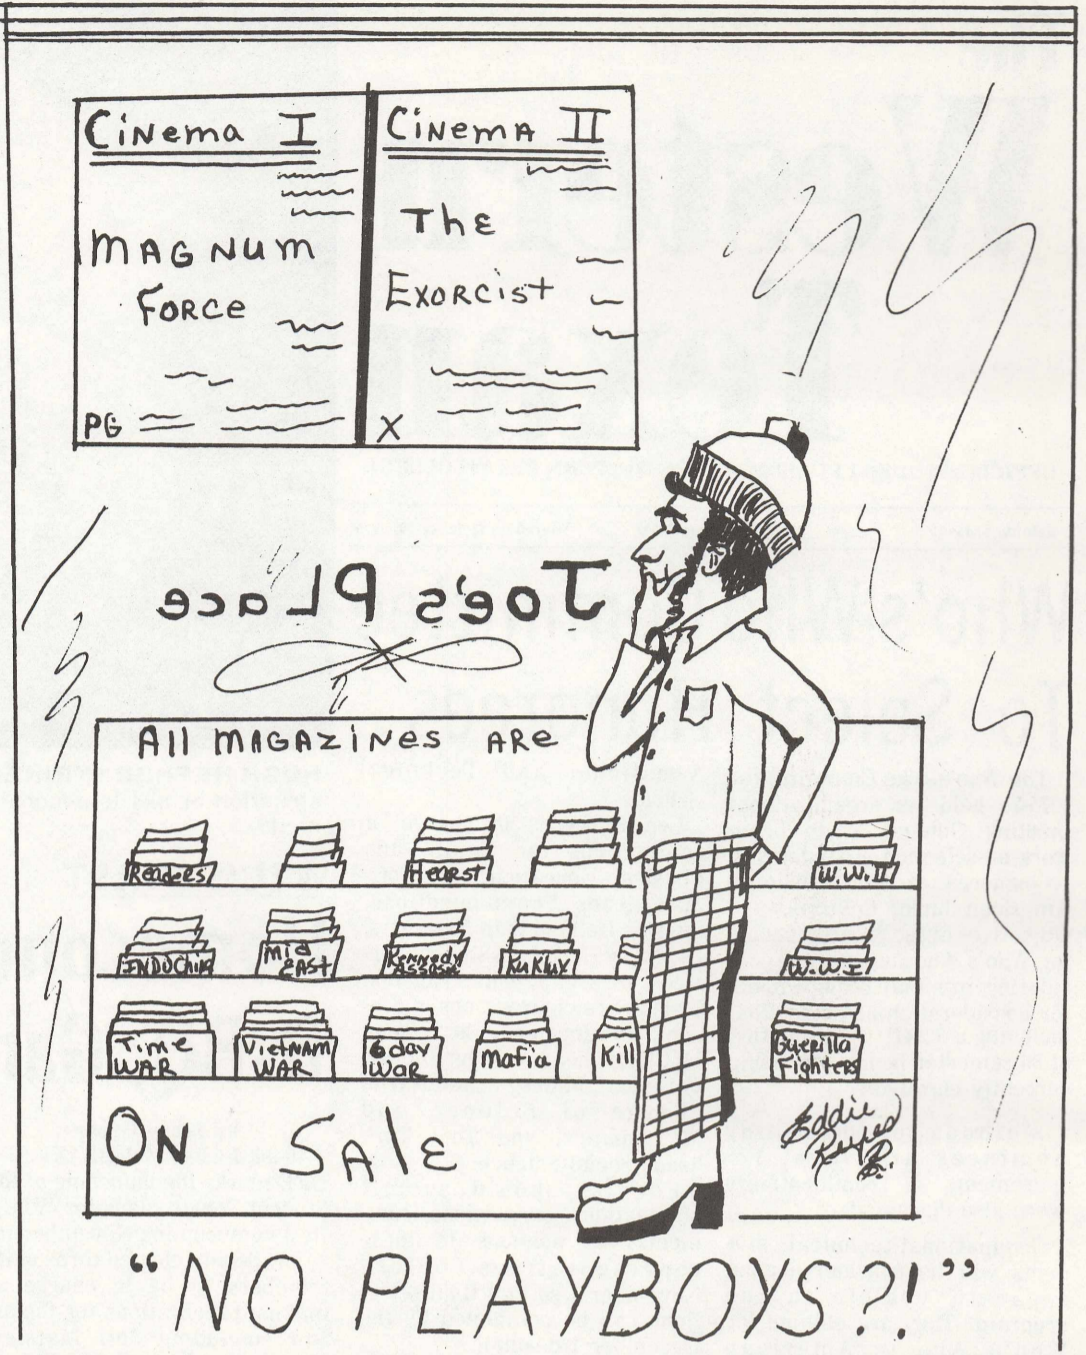 Cinema I
MAGNUM
FORCE
PG
CINEMA II
The
Exorcist
X
Joe's PLace
All MAGAZINES ARE
Readers
Hearst
W.W.II
INDOChin
Mid
EAST
Kennedy
Assasin
Ku Klux
W.W.I
Time
WAR
VietNAM
WAR
6 day
War
Mafia
Kill
Guerilla
Fighters
ON SALE
Eddie
Reyes
B.
"NO PLAYBOYS?!"